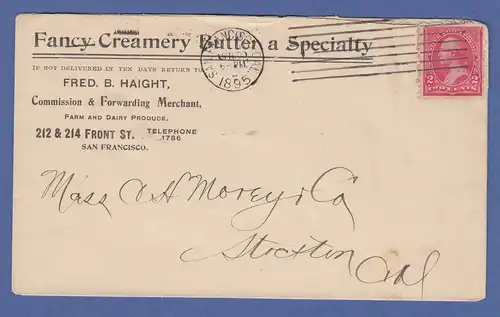 Fancy Creamery Butter a Specialty
SAN FRANCISCO, CAL.
5-PM
1895
IF NOT DELIVERED IN TEN DAYS RETURN TO
FRED. B. HAIGHT,
Commission & Forwarding Merchant,
FARM AND DAIRY PRODUCE,
212 & 214 FRONT ST. TELEPHONE 1786
SAN FRANCISCO.
2 TWO CENTS 2
A H Morey & Co
Stockton
Cal